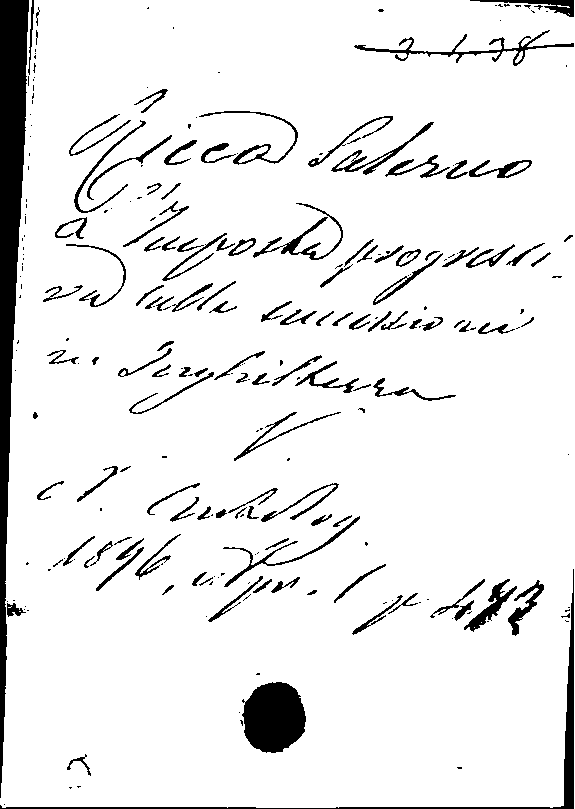 3.4.38
Ricca Salerno
L'Imposta progressi-
va sulle successioni
in Inghilterra
V.
N. Antolog
1896, Apr. 1 p 473